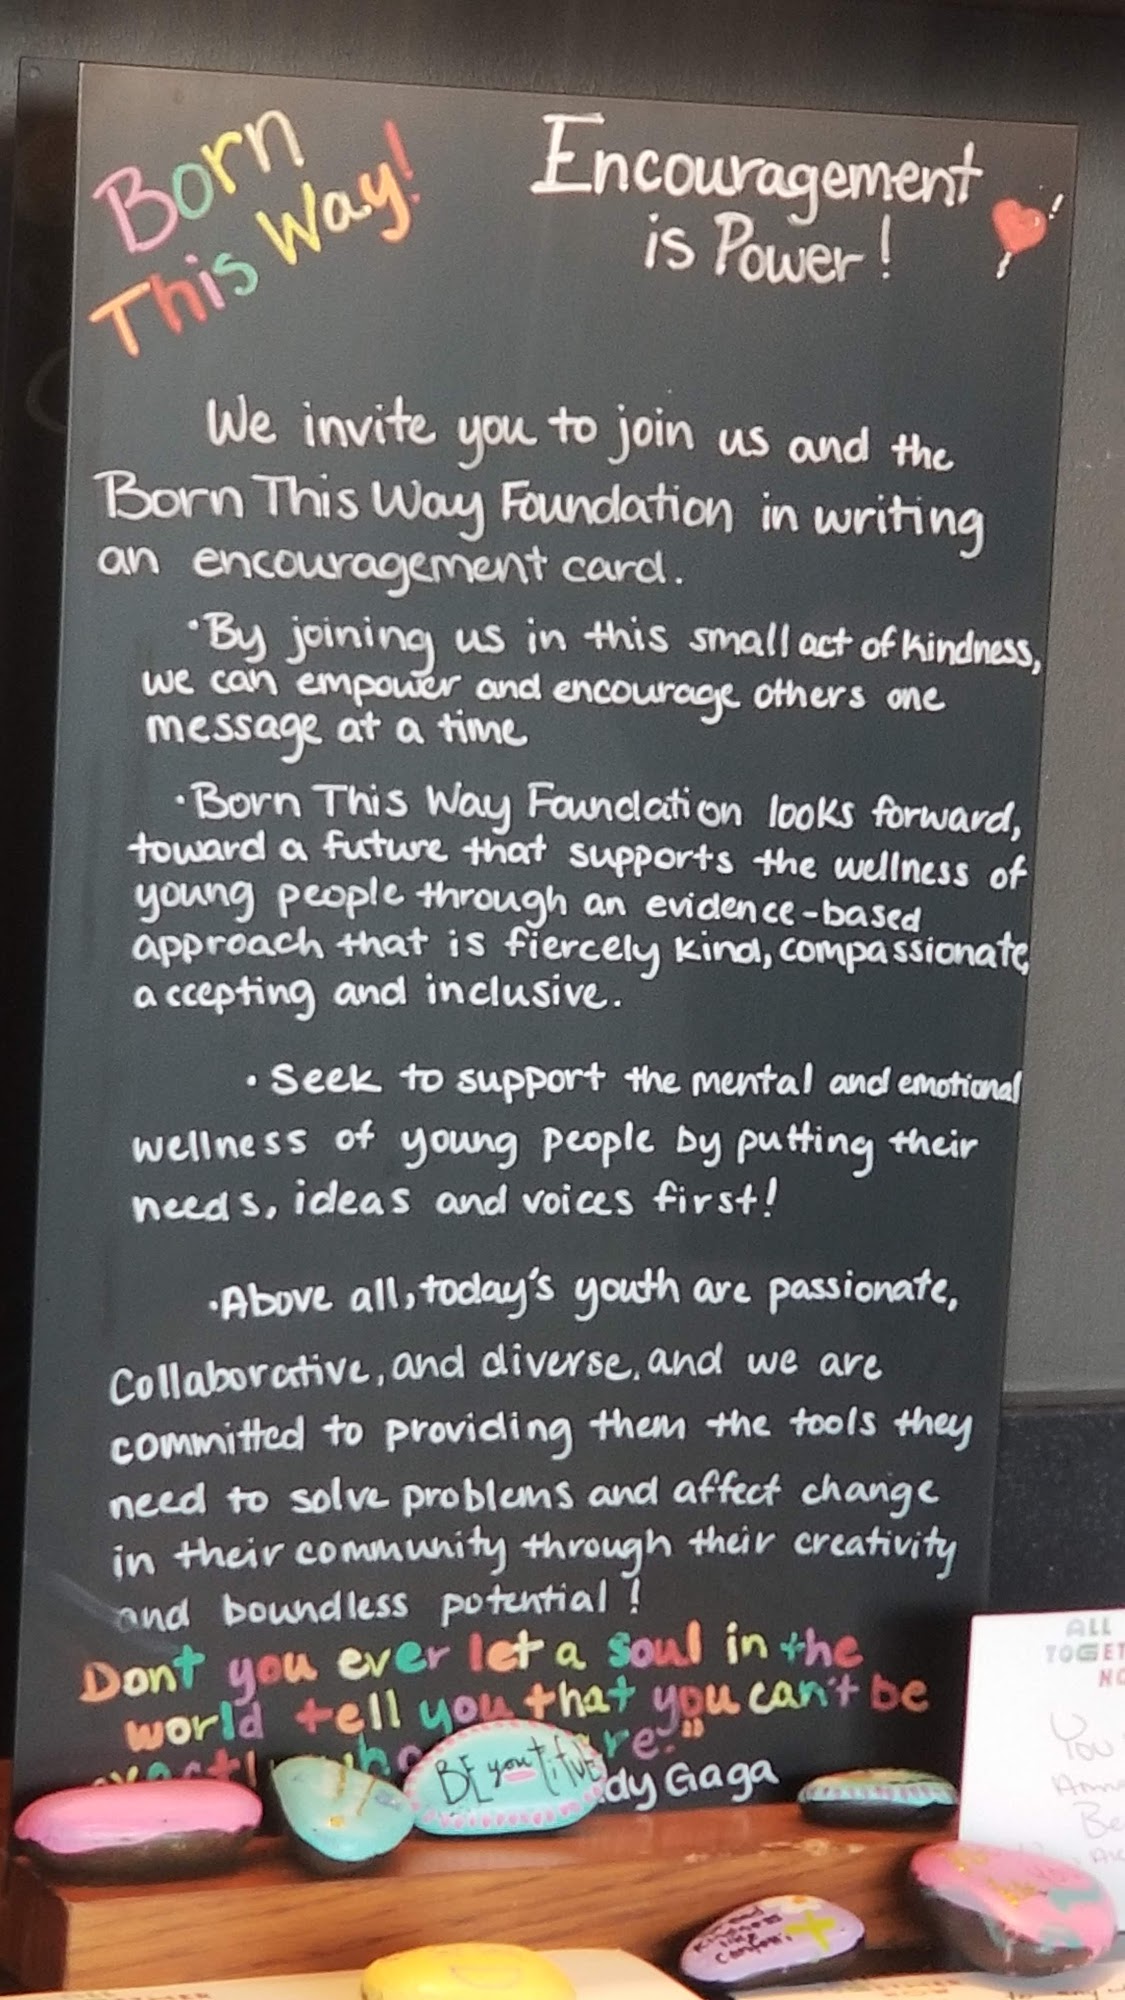 Born
This Way!
Encouragement
is Power!
We invite you to join us and the
Born This Way Foundation in writing
an encouragement card.
·By joining us in this small act of kindness,
we can empower and encourage others one
message at a time
·Born This Way Foundation looks forward,
toward a future that supports the wellness of
young people through an evidence-based
approach that is fiercely kind, compassionate,
accepting and inclusive.
·Seek to support the mental and emotional
wellness of young people by putting their
needs, ideas and voices first!
·Above all, today's youth are passionate,
Collaborative, and diverse, and we are
committed to providing them the tools they
need to solve problems and affect change
in their community through their creativity
and boundless potential!
Dont you ever let a soul in the
world tell you that you can't be
re."
dy Gaga
BE you tiful
ALL
TOGET
NO
You
Kindness
like
Confetti